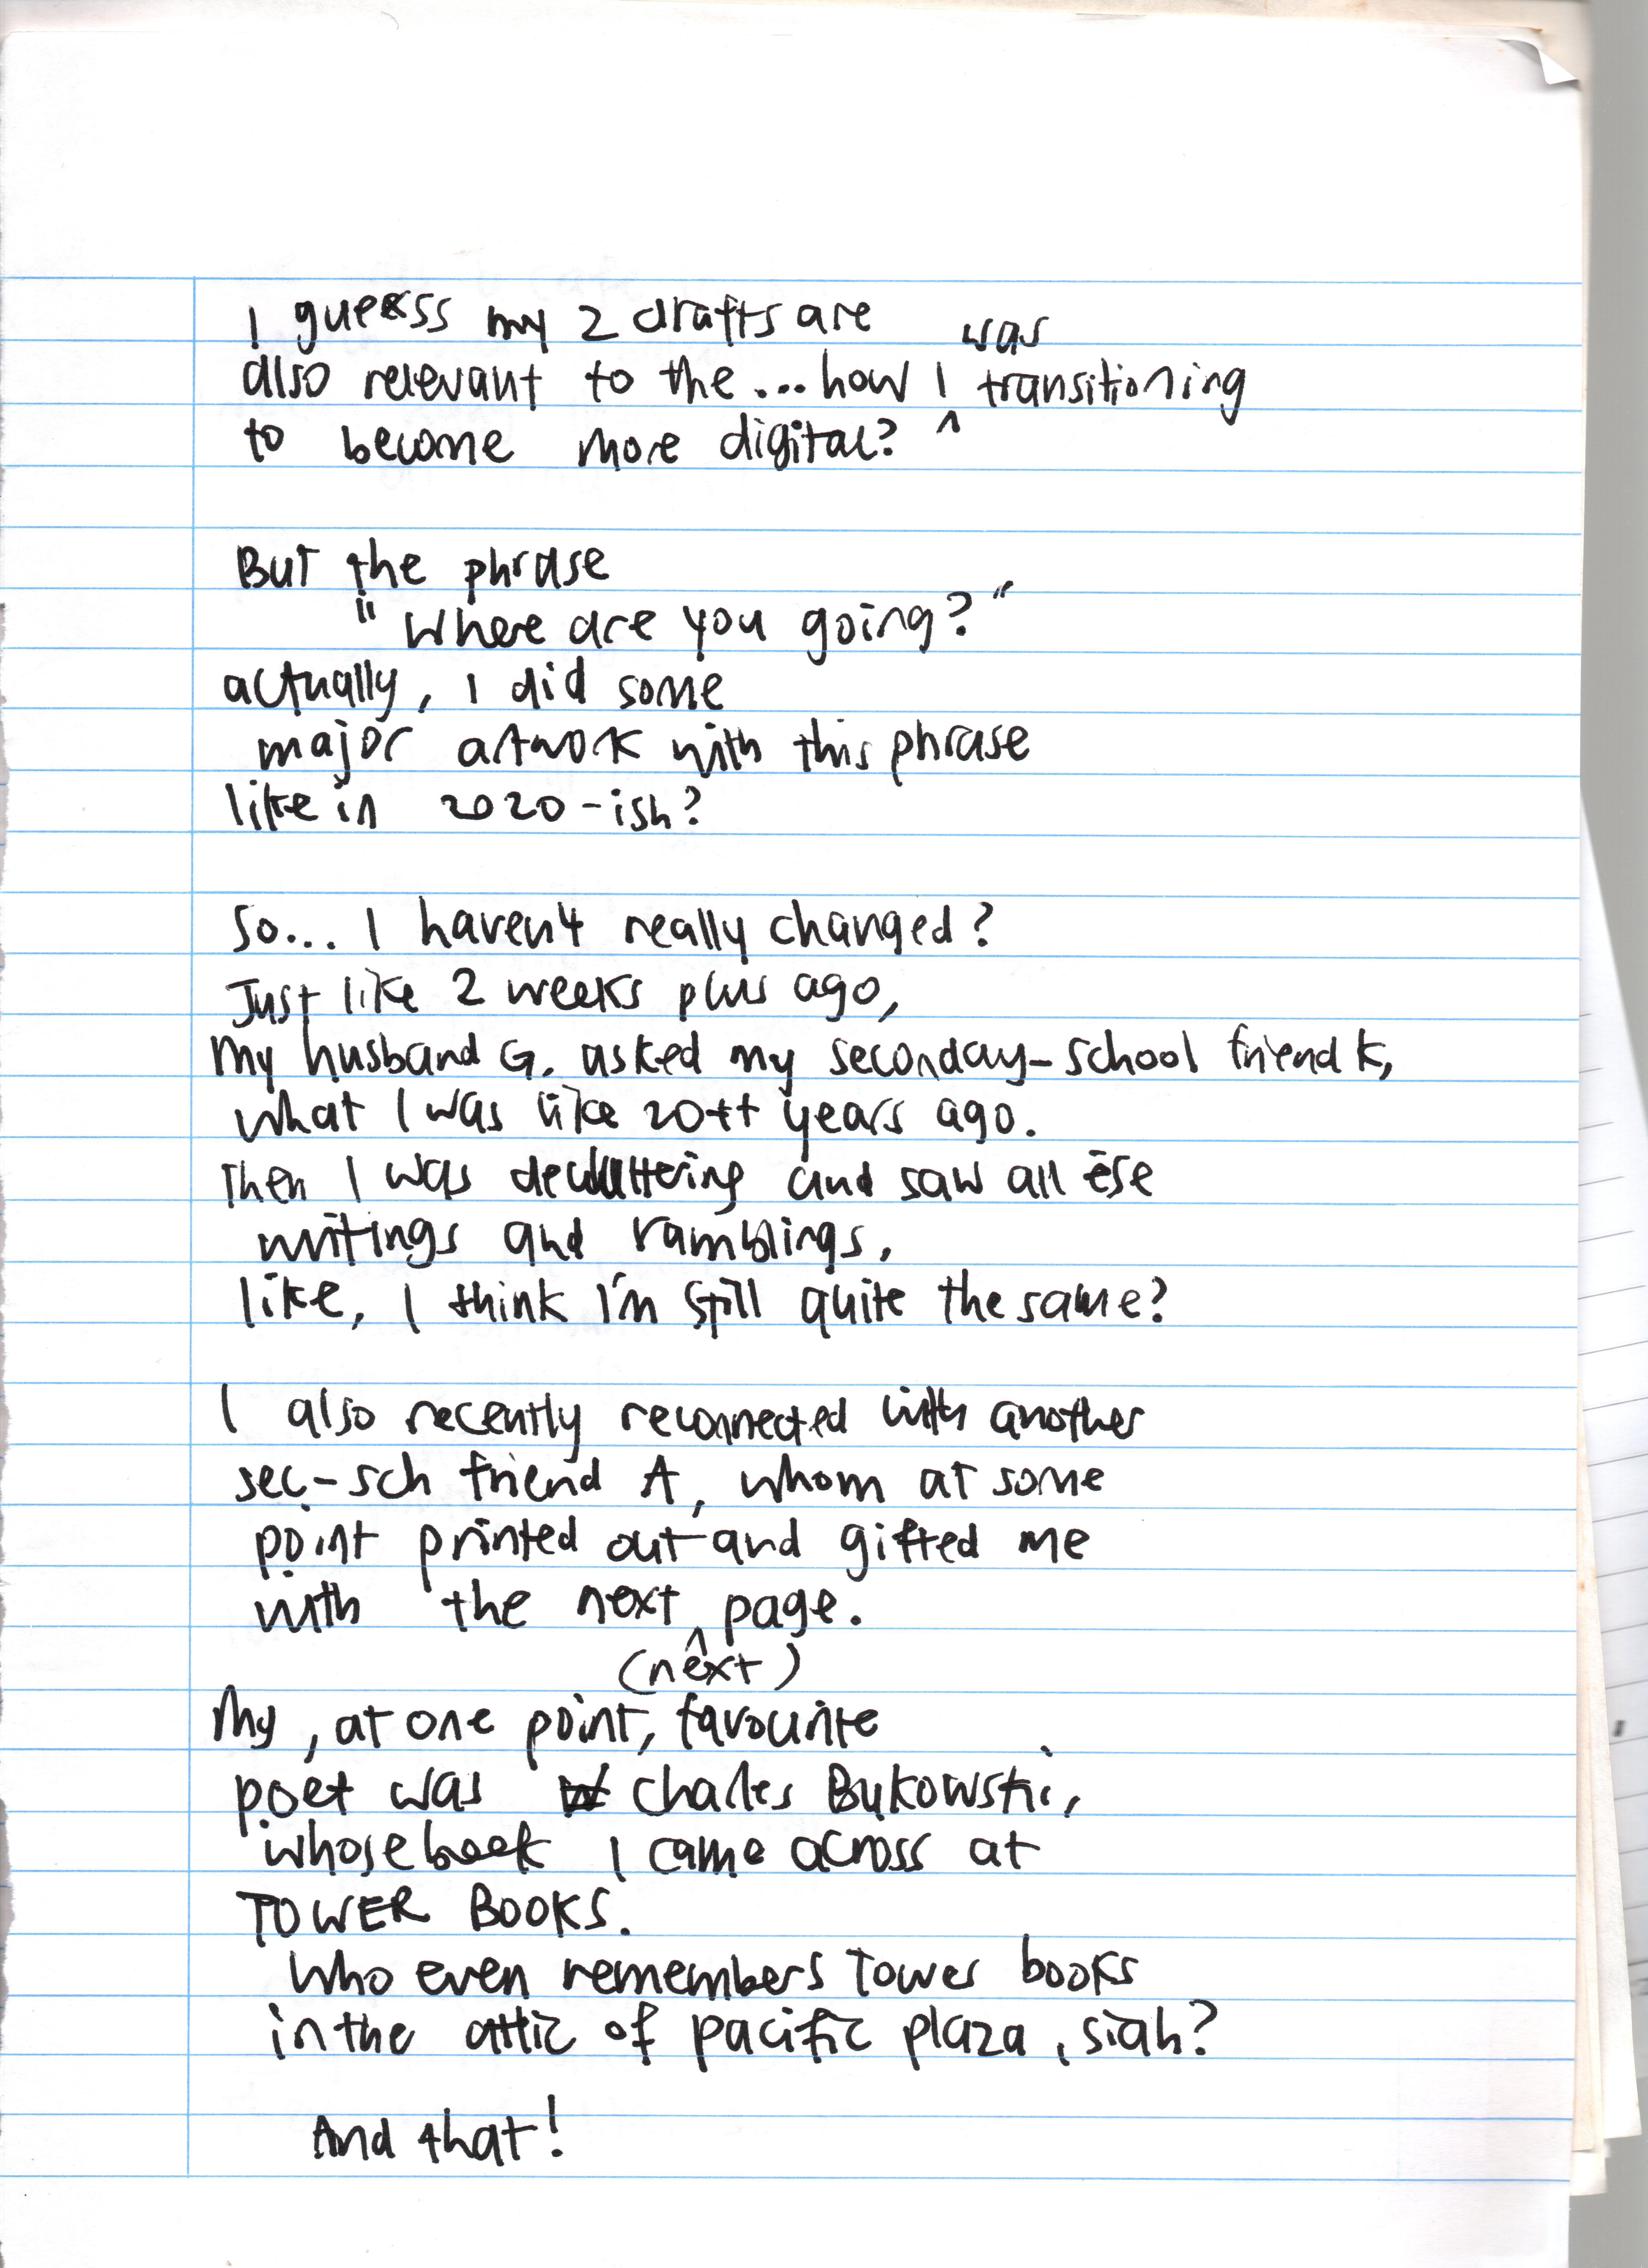 I guess my 2 drafts are
also relevant to the ... how I was transitioning
to become more digital?
But the phrase
"Where are you going?"
actually, I did some
major artwork with this phrase
like in 2020-ish?
So... I haven't really changed?
Just like 2 weeks plus ago,
my husband G. asked my seconday-school friend K,
what I was like 20++ years ago.
Then I was decluttering and saw all
writings and ramblings,
like, I think I'm still quite the same?
I also recently reconnected with another
sec-sch friend A, whom at some
point printed out and gifted me
with the next page.
(next)
My, at one point, favourite
poet was Charles Bukowski,
whose book I came across at
TOWER BOOKS.
Who even remembers Tower books
in the attic of pacific plaza, siah?
And that!